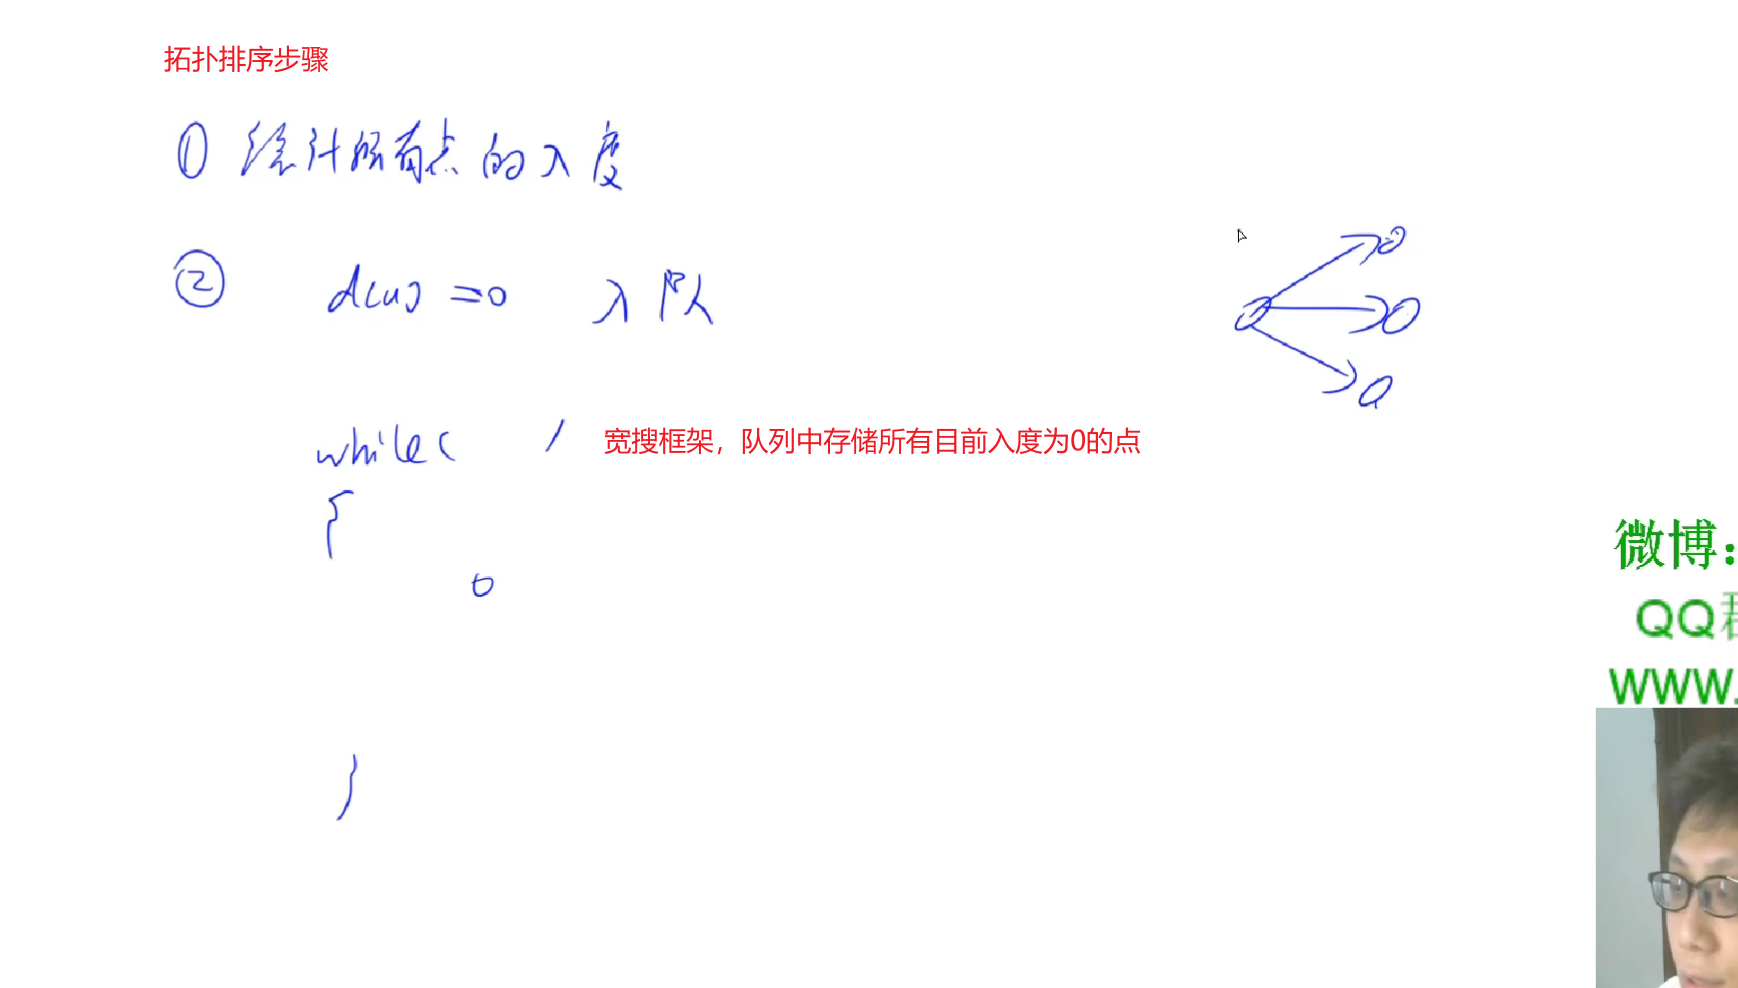 拓扑排序步骤
① 统计所有点的入度
② d[u] = 0 入队
while( ) 宽搜框架，队列中存储所有目前入度为0的点
{
}
微博：
QQ群
www.